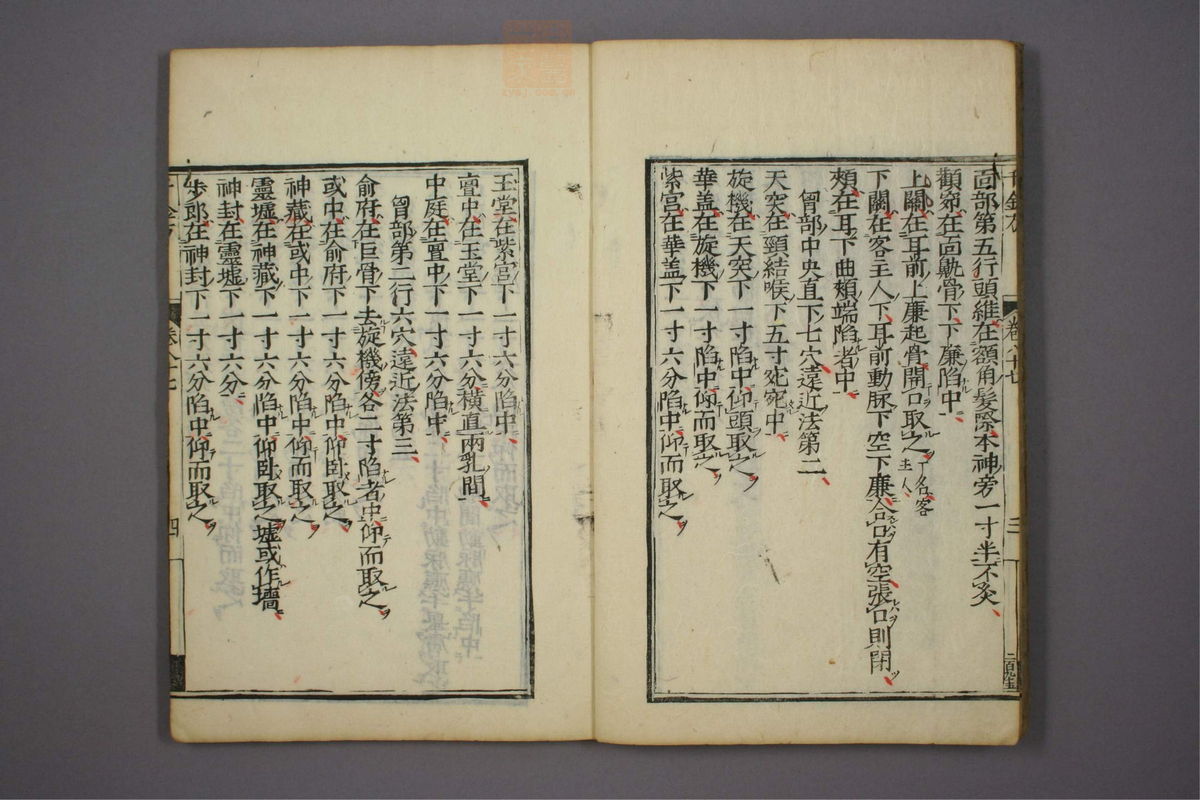 面部第五行頭維在額角髮際本神旁一寸半不灸
顴窌在面䪼骨下下廉陷中
上關在耳前上廉起骨開口取之一名客主人
下關在客主人下耳前動脉下空下廉合口有空張口則閉
頰在耳下曲頰端陷者中
胷部中央直下七穴遠近法第二
天突在頸結喉下五寸宛宛中
旋機在天突下一寸陷中仰頭取之
華盖在旋機下一寸陷中仰而取之
紫宫在華盖下一寸六分陷中仰而取之
千金方
卷八十七
三
玉堂在紫宫下一寸六分陷中
亶中在玉堂下一寸六分橫直兩乳間
中庭在亶中下一寸六分陷中
胷部第二行六穴遠近法第三
俞府在巨骨下去旋機傍各二寸陷者中仰而取之
或中在俞府下一寸六分陷中仰卧取之
神藏在或中下一寸六分陷中仰而取之
靈墟在神藏下一寸六分陷中仰卧取之墟或作墻
神封在靈墟下一寸六分
步郎在神封下一寸六分陷中仰而取之
千金方
卷八十七
四